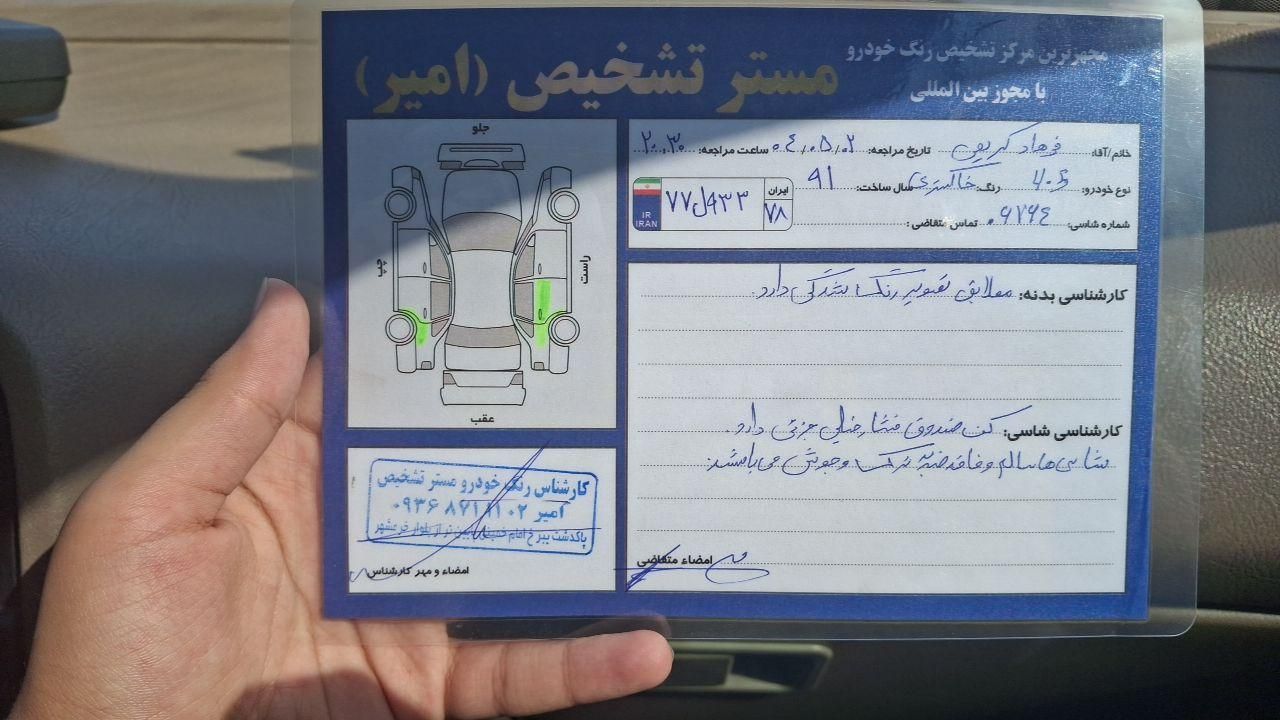 مجهزترین مرکز تشخیص رنگ خودرو
با مجوز بین المللی
مستر تشخیص (امیر)
خانم/آقا: فرهاد کریمی تاریخ مراجعه: ۰۴/۰۵/۰۲ ساعت مراجعه: ۲۰:۳۰
نوع خودرو: ۴۰۵ رنگ: خاکستری سال ساخت: ۹۱
شماره شاسی: تماس متقاضی:
IR
IRAN
۷۷ل۹۳۳
ایران
۷۸
جلو
چپ
راست
عقب
کارشناسی بدنه: مطابق تصویر رنگ شدگی دارد.
کارشناسی شاسی: کف صندوق فشار خیلی جزئی دارد.
شاسی‌ها سالم و فاقد ضربه ترک و جوش می‌باشد.
امضاء متقاضی
کارشناس رنگ خودرو مستر تشخیص
امیر ۰۹۳۶۸۷۱۱۱۰۲
امضاء و مهر کارشناس